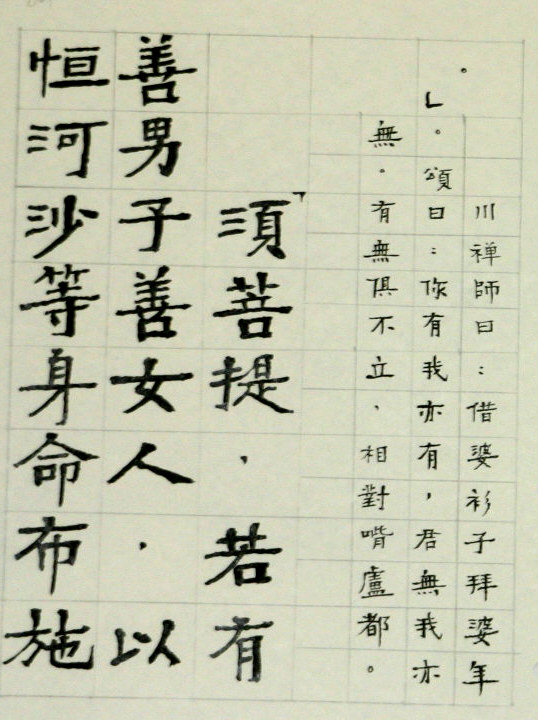 川禅師曰：借婆衫子拜婆年
。」。頌曰：你有我亦有，君無我亦
無。有無俱不立、相對嘴盧都。
「須菩提，若有
善男子善女人，以
恒河沙等身命布施